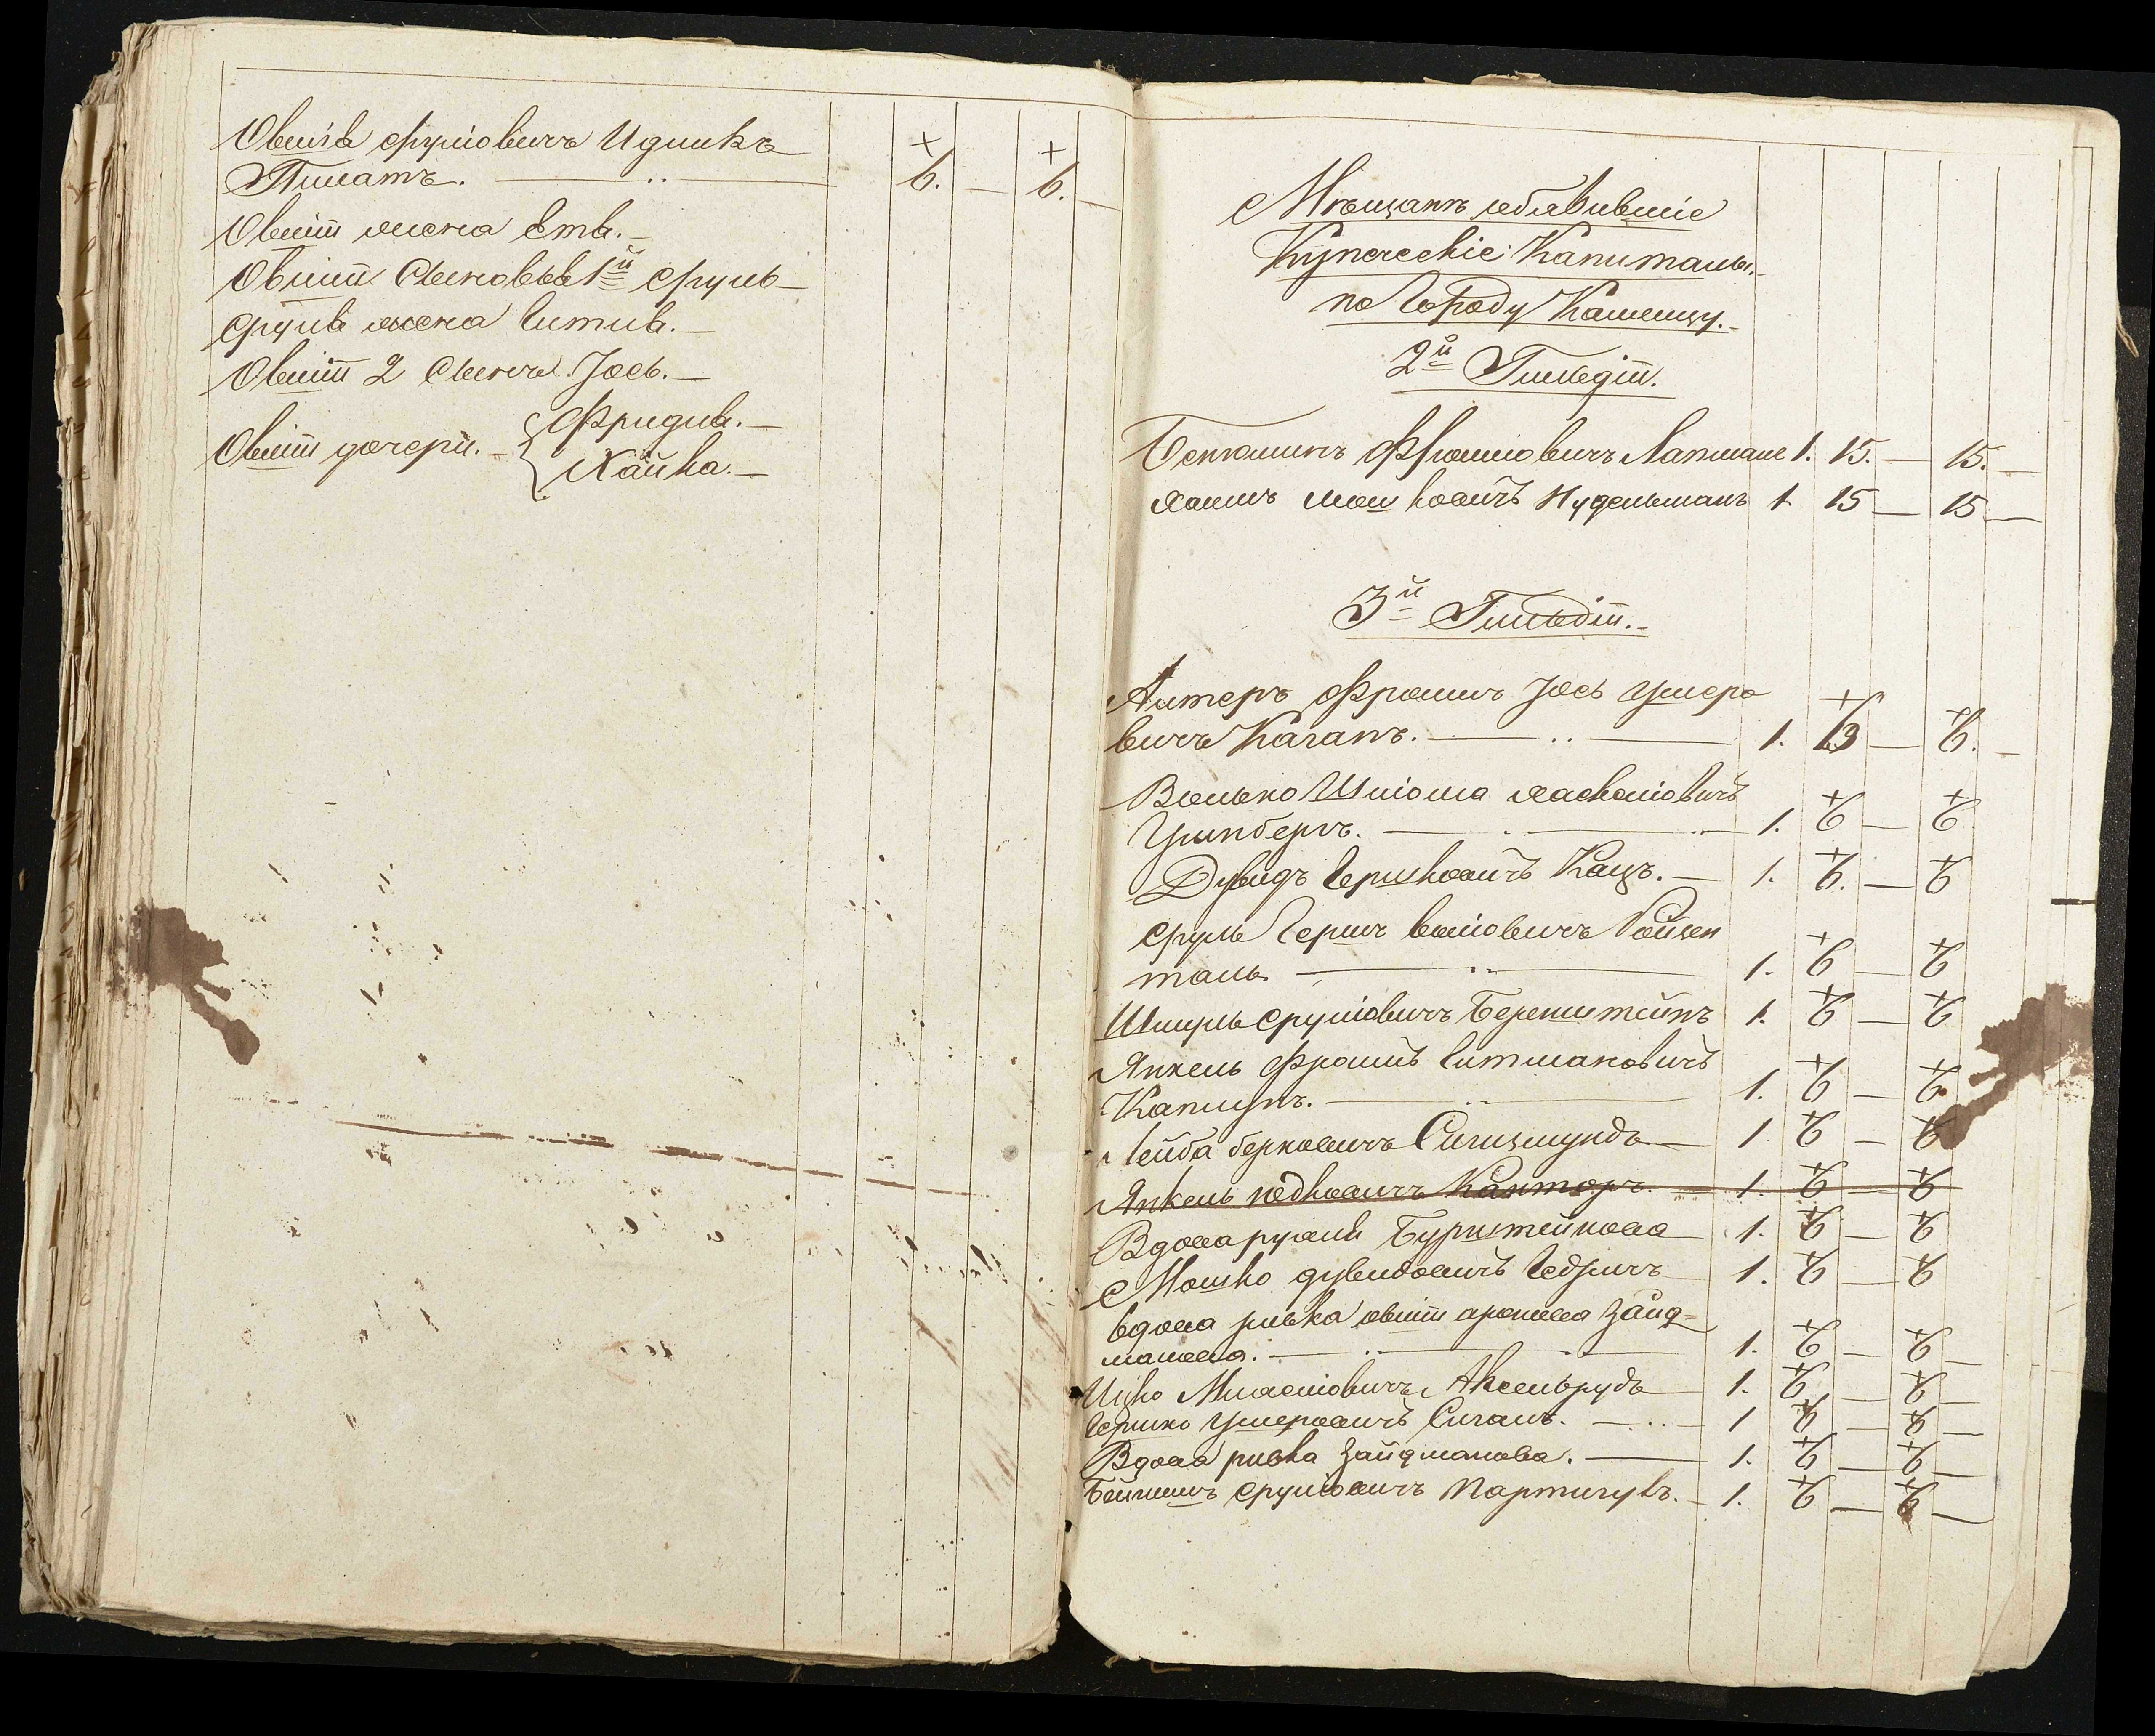 Овшія Срулiовичъ Идшкъ
Пилатъ. 6. — 6. —
Овшіи жена Ета.
Овшіи Сыновья 1й Сруль
Сруля жена Гитля.
Овшіи 2 Сынъ Іось.
Овшіи дочери. Фридля.
Хайка.
Мѣщанъ объявившіе
Купеческіе Капиталы
по Городу Каменцу.
2й Гильдіи.
Бенюминъ Фроимовичъ Лапман 1. 15. — 15. —
Хаимъ Мошковичъ Нудельманъ 1 15 — 15 —
3й Гильдіи.
Алтеръ Фроимъ Іось Ушеро
вичъ Каганъ. 1. 6. —
Волько Шліома Хаскеліовичъ
Гринбергъ. 1. 6 — 6
Дувидъ Гершковичъ Кацъ. — 1. 6. — 6
Сруль Гершъ Воліовичъ Ройзен
таль 1. 6 — 6
Шмуль Сруліовичъ Беренштейнъ 1. 6 — 6
Янкель Фроимъ Гитмановичъ
Каплунъ. 1. 6 — 6
Лейба Берковичъ Сигизмундъ — 1. 6 — 6
Янкель Юдковичъ Канторъ. — 1. 6 — 6
Вдова Рухля Бурштейнова 1. 6 — 6
Мошко Дувидовичъ 1. 6 — 6
Вдова Ривка Овшіи Аронова Зайд=
манова. 1. 6 — 6 —
Ицко Михеліовичъ Аксельрудъ 1. 6 — 6 —
Гершко Ушеровичъ Сигалъ. — 1 6 — 6 —
Вдова Ривка Зайдманова. — 1. 6 — 6 —
Бейнишъ Сруліовичъ Партигулъ. — 1. 6 — 6 —